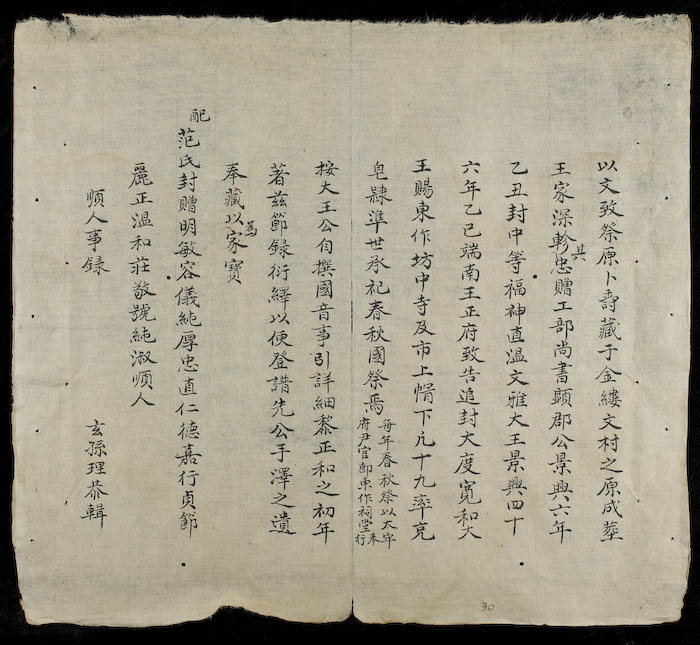 以文致祭原卜壽藏于金縷文村之原成葬
王家深軫其忠贈工部尚書顕郡公景興六年
乙丑封中等福神直温文雅大王景興四十
六年乙巳端南王正府致告追封大度寬和大
王賜東作坊中寺及市上帽下凢十九率充
皂隸準世承祀春秋國祭焉
每年春秋祭以太牢
府尹官郎東作祠堂來行
按大王公自撰國音事引詳細黎正和之初年
著兹節録衍繹以便登譜先公手澤之遺
奉藏以為家寶
配
范氏封贈明敏容儀純厚忠直仁德嘉行貞節
麗正溫和莊敬號純淑順人
順人事録
玄孫理恭輯
30